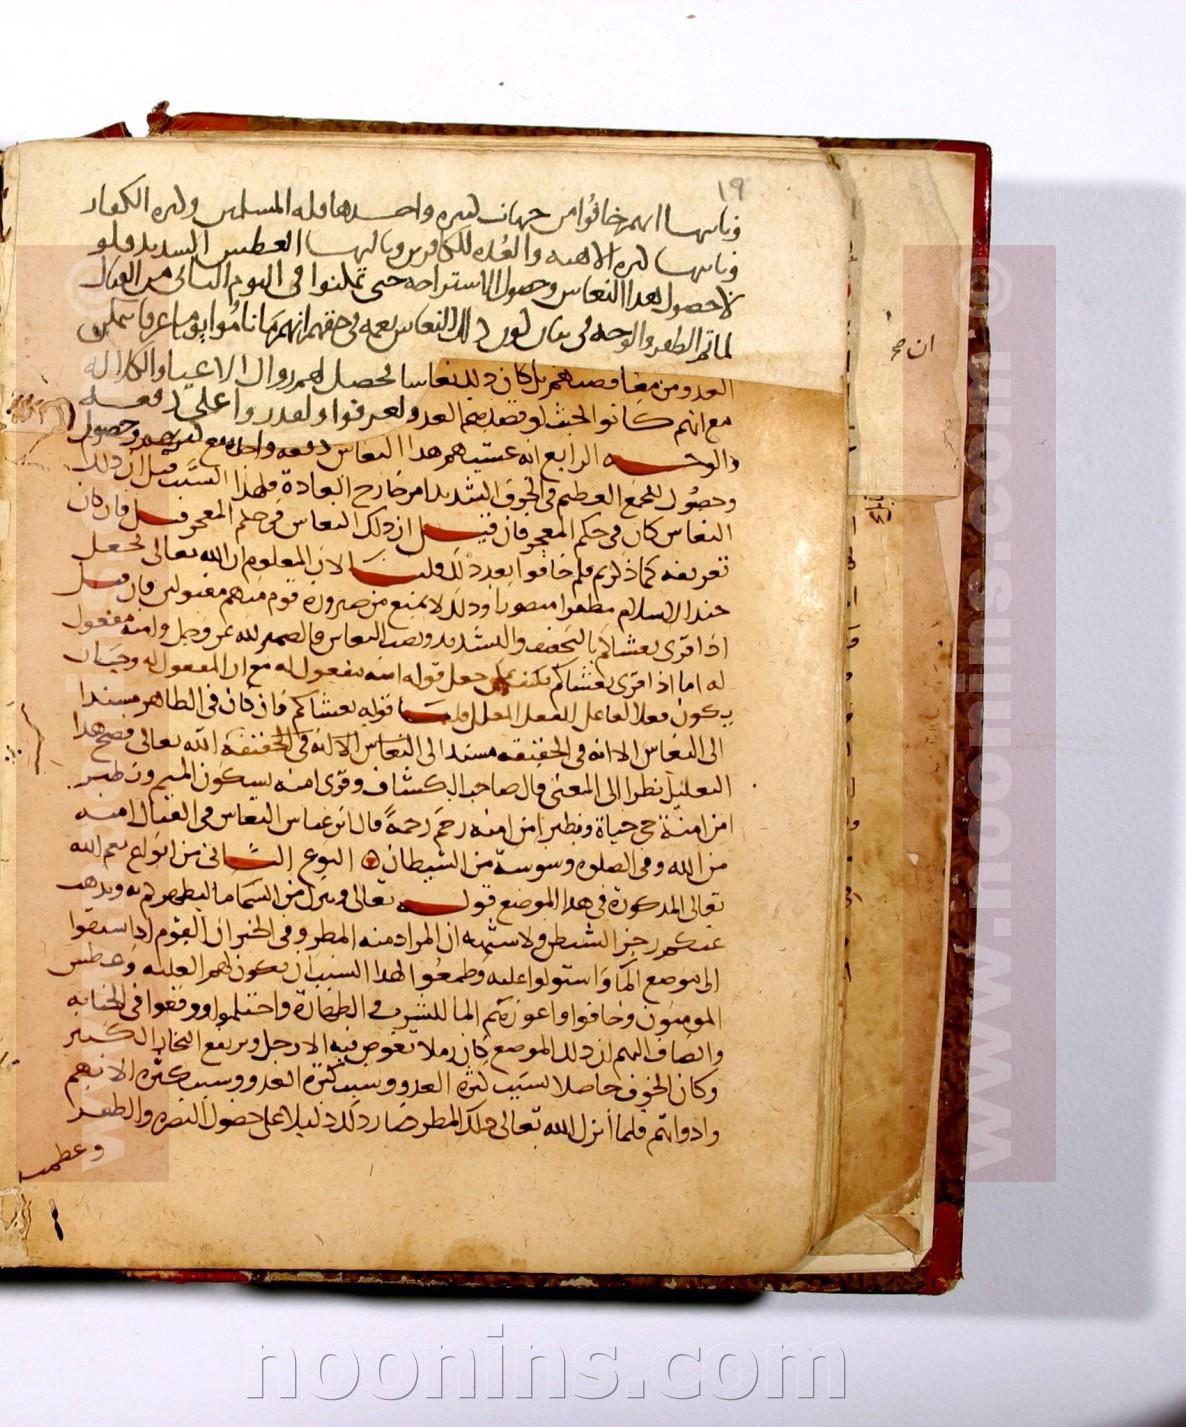 ١٩
وثانيها انهم خافوا من جهات كثيرة واحدها قلة المسلمين وكثرة الكفار
وثانيها كثرة الاهبة والعدة للكافرين وثالثها العطش الشديد فلو
لا حصول هذا النعاس وحصول الاستراحة حتى تمكنوا في اليوم الثاني من القتال
لما تم الظفر والوجه في بيان كون ذلك النعاس نعمة في حقهم انهم ما ناموا نوما غرقا يتمكن
العدو من مغافصتهم بل كان ذلك نعاسا يحصل لهم زوال الاعياء والكلالة
مع انهم كانوا بحيث لو قصدهم العدو لعرفوا ولقدروا على دفعه
والوجه الرابع انه غشيهم هذا النعاس دفعة واحدة مع كثرتهم وحصول
وحصول للجمع العظيم في الخوف الشديد امر خارج العادة فلهذا السبب قيل ان ذلك
النعاس كان في حكم المعجز فان قيل ان ذلك النعاس في حكم المعجز قيل فان كان
تعريفه كما ذكرتم فلم خافوا بعد ذلك قلنا لان المعلوم ان الله تعالى يجعل
جند الاسلام مظفرا منصورا وذلك لا يمنع من صيرورة قوم منهم مقتولين فان قيل
اذا قرى يغشاكم بالتخفيف والتشديد ونصب النعاس فالضمير لله عز وجل وامنة مفعول
له اما اذا قرى يغشاكم فكيف يمكن جعل قوله امنة مفعول له مع ان المفعول له وجب ان
يكون فعلا لفاعل الفعل المعلل قلنا قوله يغشاكم فان كان في الظاهر مسندا
الى النعاس الا انه في الحقيقة مسند الى النعاس الا انه في الحقيقة الله تعالى فصح هذا
التعليل نظرا الى المعنى قال صاحب الكشاف وقرى امنة بسكون الميم ونظير
امن امنة حي حياة ونظير امن امنة رحم رحمة قال ابن عباس النعاس في القتال امنة
من الله وفي الصلوة وسوسة من الشيطان النوع الثاني من انواع نعم الله
تعالى المذكورة في هذا الموضع قوله تعالى وينزل من السماء ماء ليطهركم به ويذهب
عنكم رجز الشيطن ولا شبهة ان المراد منه المطر وفي الخبر ان القوم اذا سبقوا
الى موضع الماء واستولوا عليه وطمعوا لهذا السبب ان يكون لهم الغلبة وعطش
المومنون وخافوا واعوزهم الماء للشرب والطهارة واحتلموا ووقعوا في الجنابة
وانضاف اليهم ان ذلك الموضع كان رملا تغوص فيه الارجل ويرتفع الغبار الكثير
وكان الخوف حاصلا بسبب كثرة العدو وسبب كثرة العدو وسبب كثرة الاتهم
وادواتهم فلما انزل الله تعالى ذلك المطر صار ذلك دليلا على حصول النصرة والظفر
وعظمت
ان صح
www.noonins.com ©
www.noonins.com ©
noonins.com